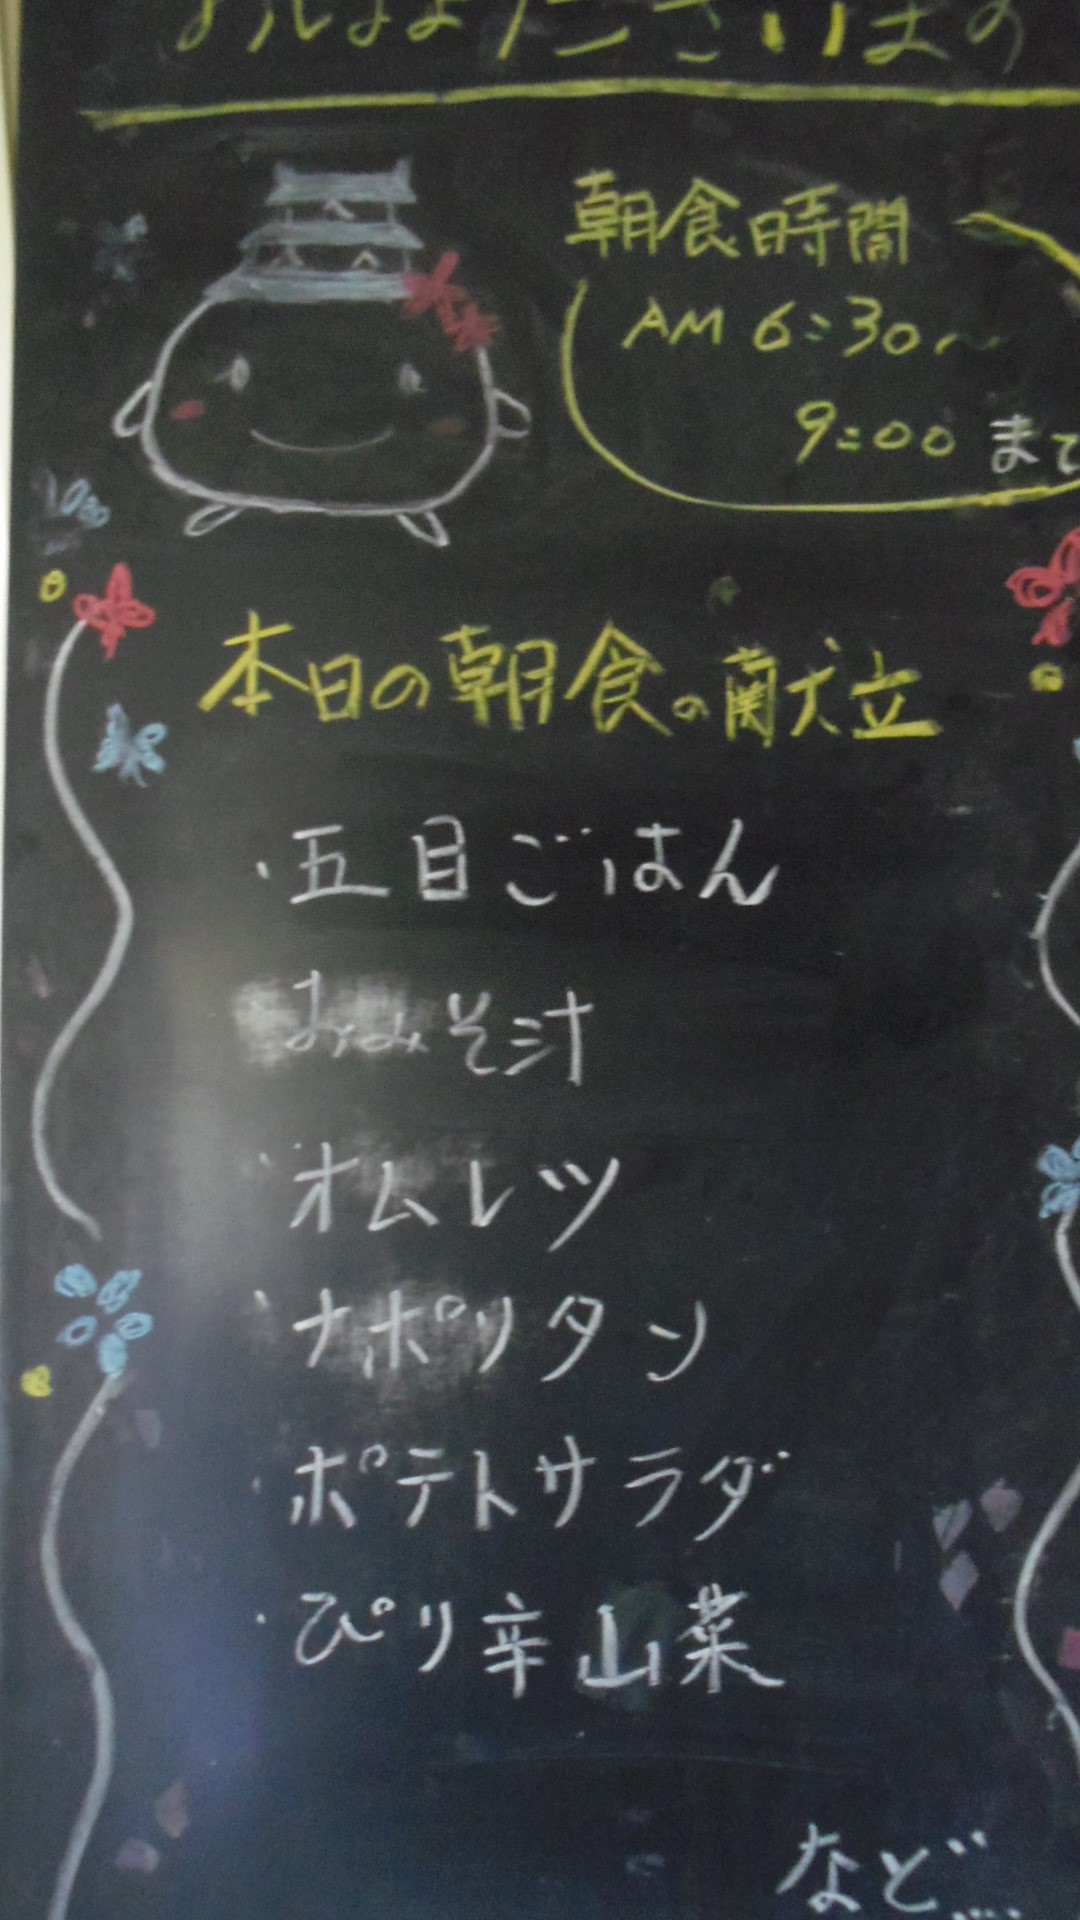 おはようございます
朝食時間
AM 6:30〜
9:00 まで
本日の朝食の献立
・五目ごはん
・おみそ汁
・オムレツ
・ナポリタン
・ポテトサラダ
・ぴり辛山菜
など....